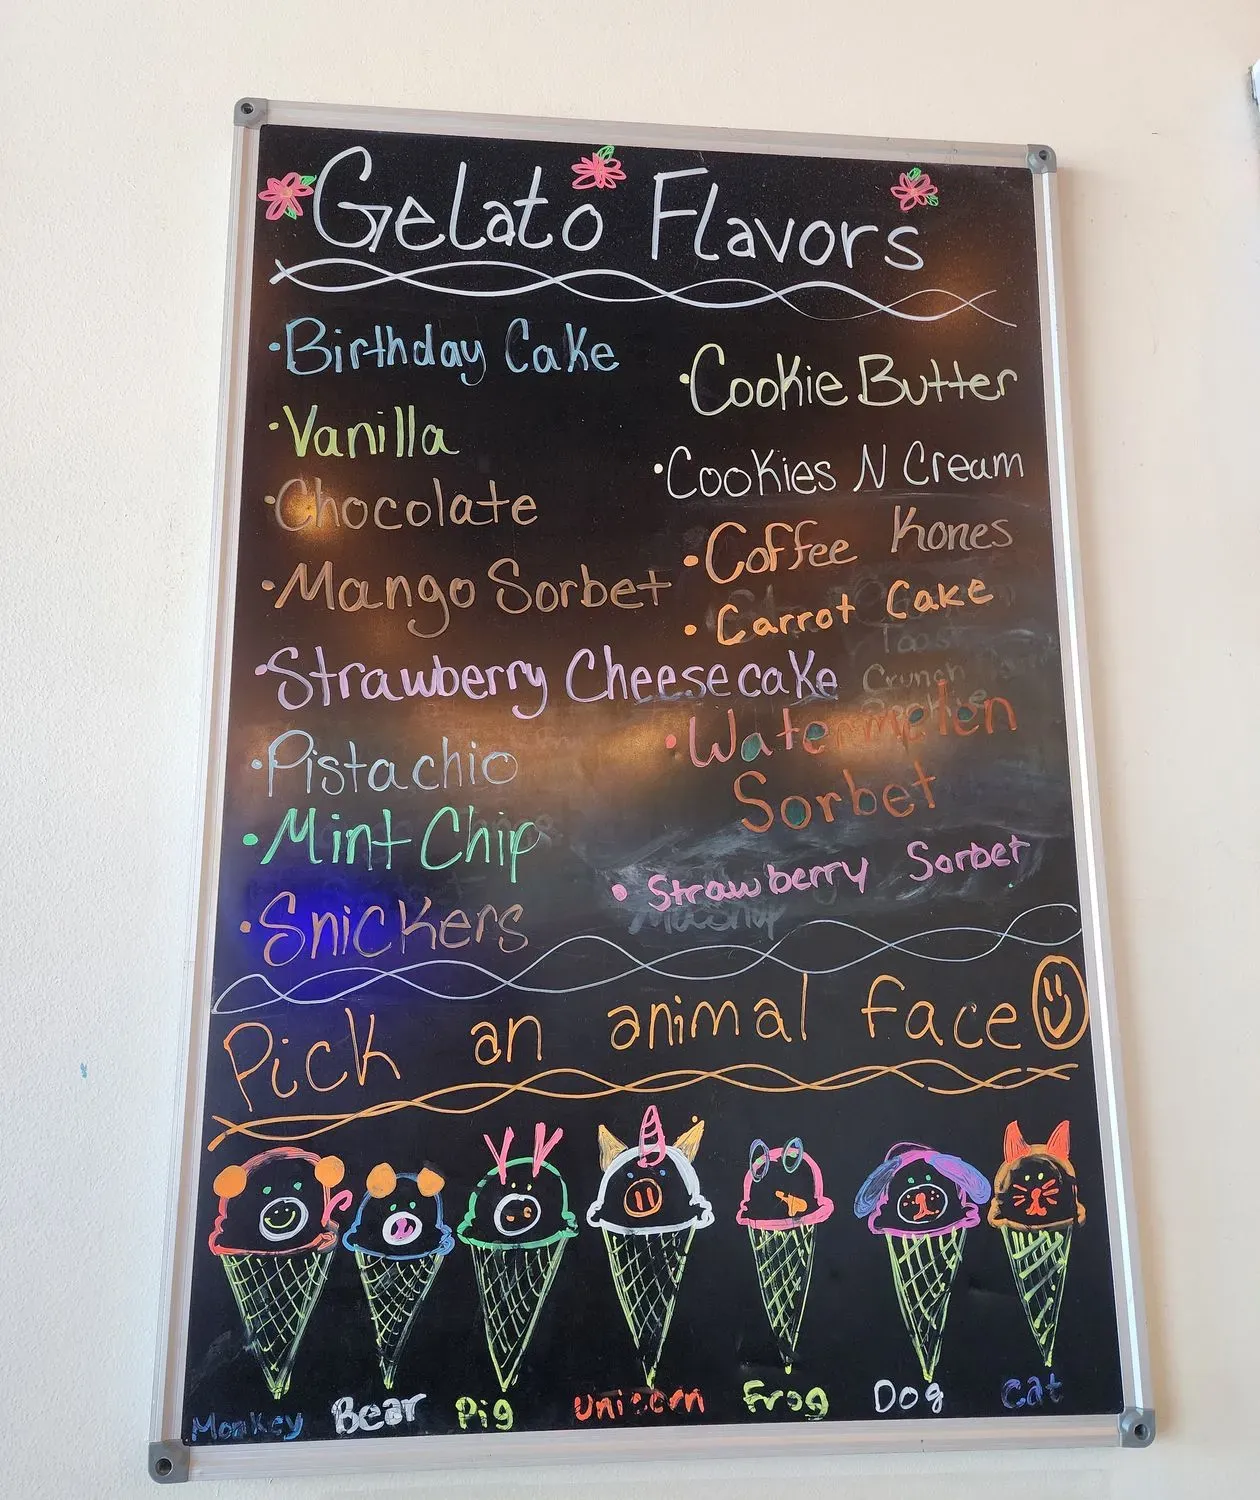 Gelato Flavors
• Birthday Cake
• Vanilla
• Chocolate
• Mango Sorbet
• Strawberry Cheesecake
• Pistachio
• Mint Chip
• Snickers
• Cookie Butter
• Cookies N Cream
• Coffee Kones
• Carrot Cake
Crunch
• Watermelon
Sorbet
• Strawberry Sorbet
Pick an animal face
Monkey Bear Pig Unicorn Frog Dog Cat